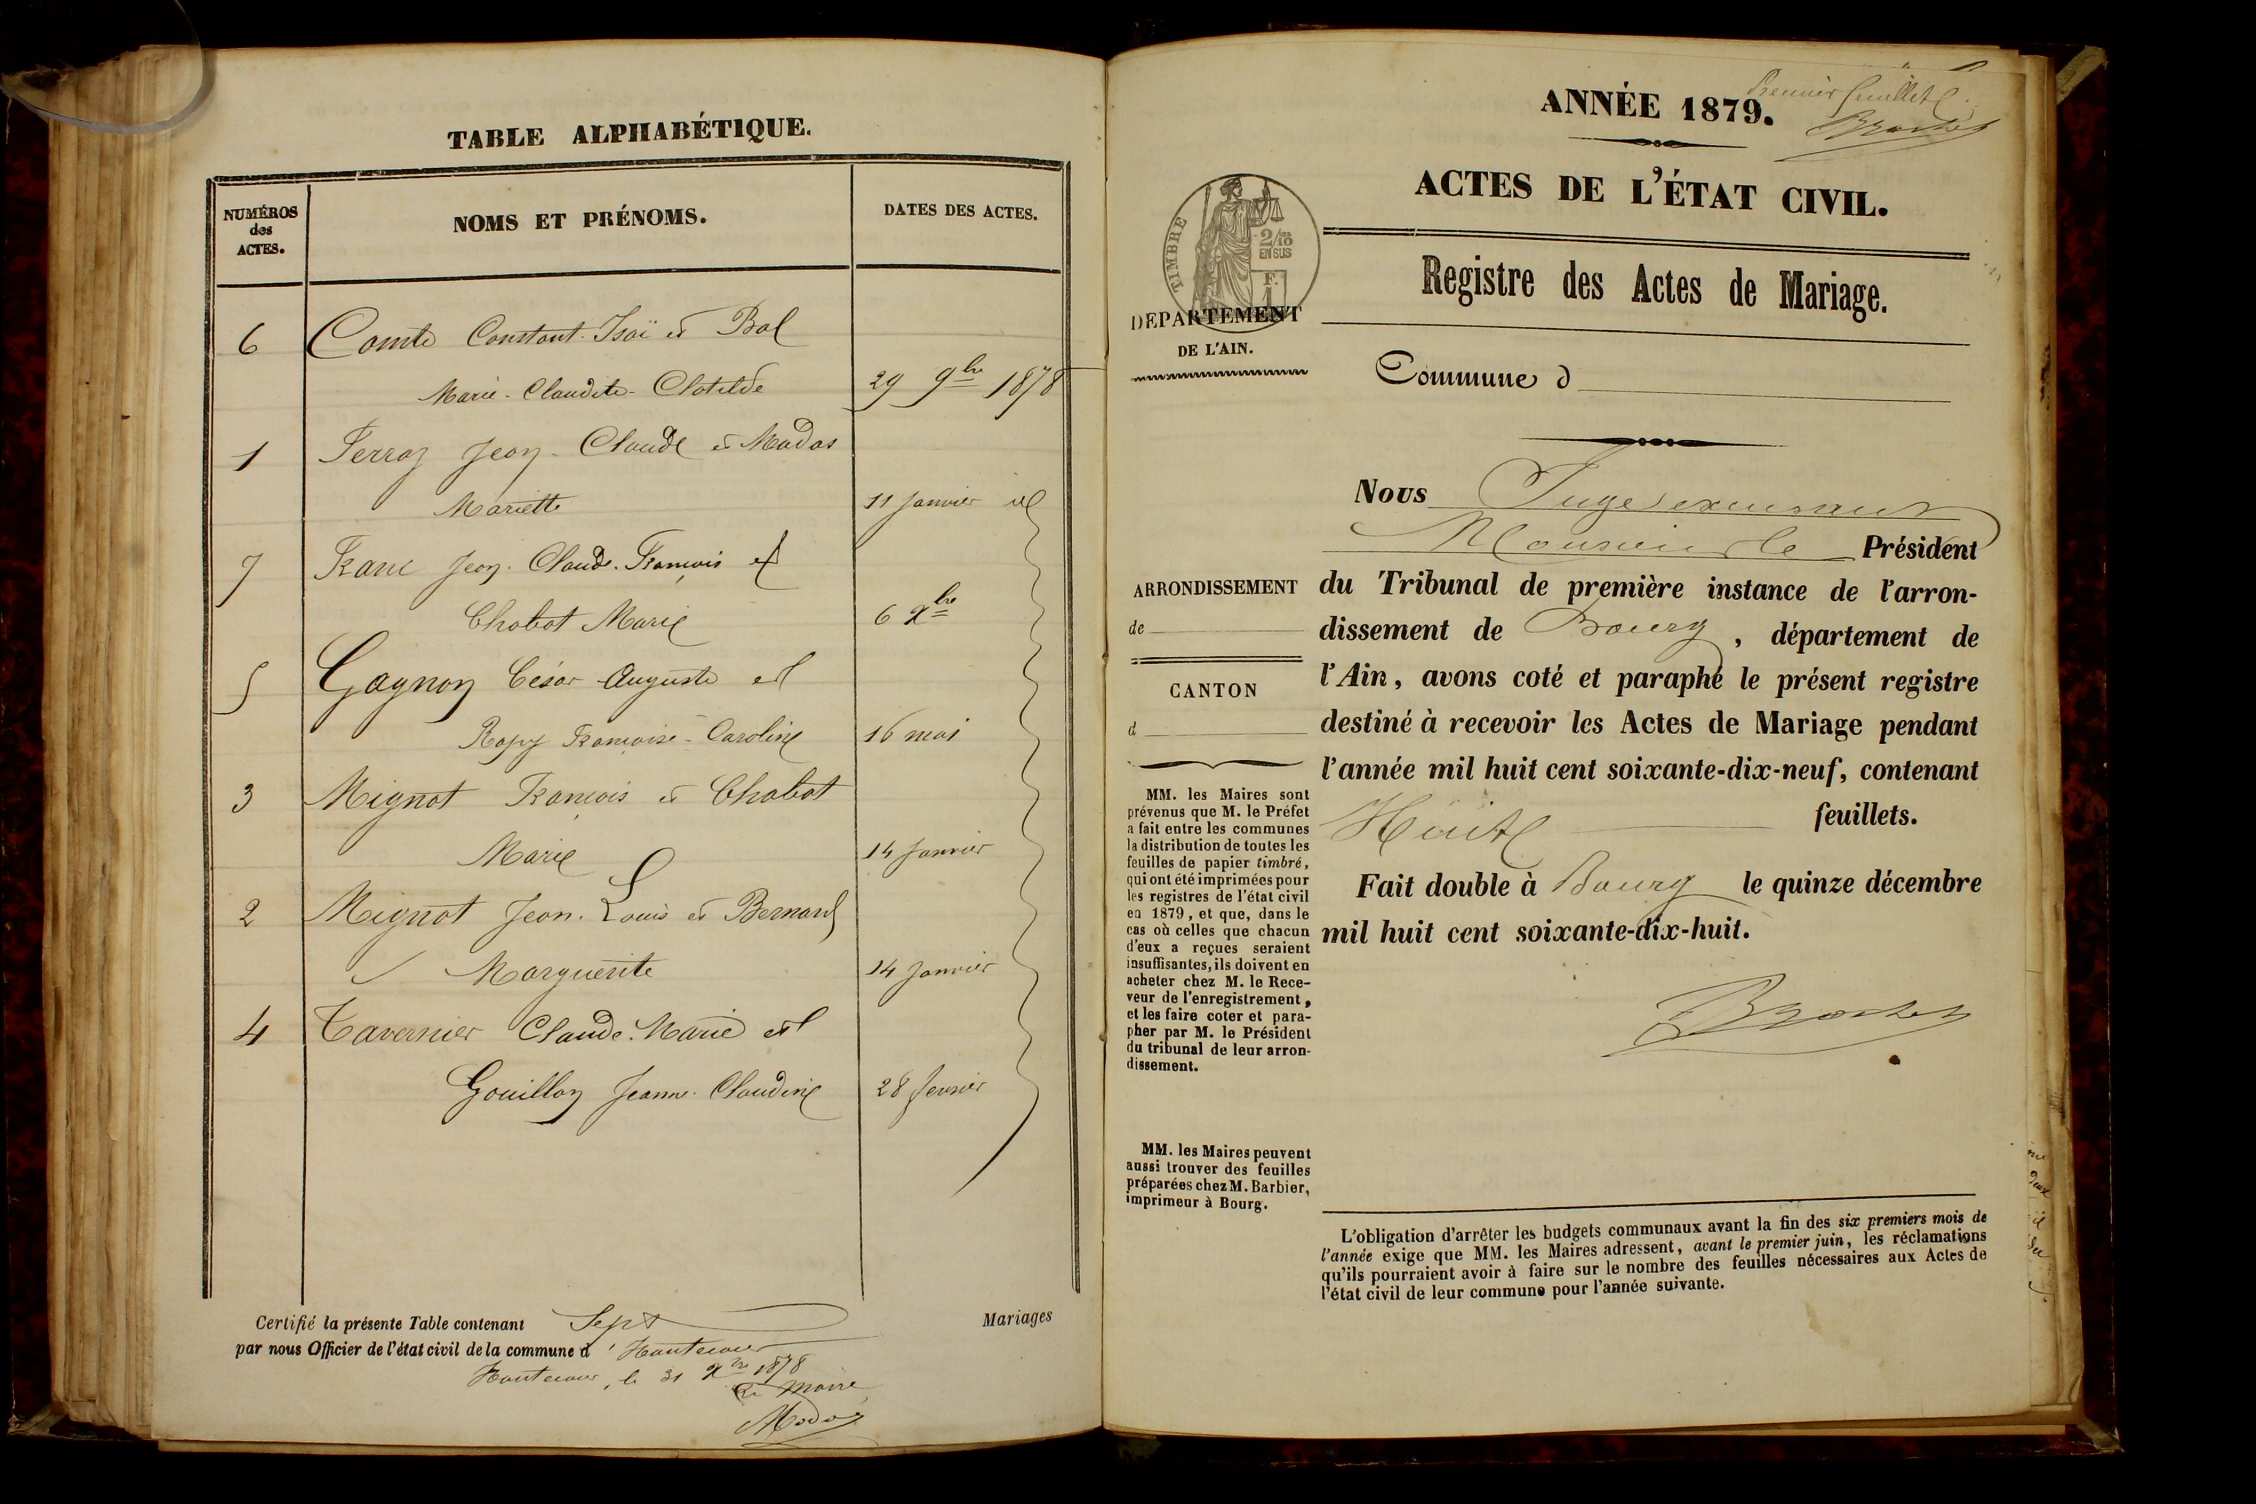 TABLE ALPHABÉTIQUE.
NUMÉROS
des
ACTES.
NOMS ET PRÉNOMS.
DATES DES ACTES.
6 Comte Constant Isaï et Bal
Marie-Claudite-Clotilde 29 9bre 1878
1 Ferraz Jean-Claude et Madas
Mariette 11 Janvier id
7 Franc Jean-Claude-François et
Chabot Marie 6 Xbre
5 Gagnon César Auguste et
Françoise-Caroline 16 mai
3 Mignot François et Chabot
Marie 14 Janvier
2 Mignot Jean-Louis et Bernard
Marguerite 14 Janvier
4 Tavernier Claude-Marie et
Gouillon Jeanne-Claudine 28 fevrier
Certifié la présente Table contenant Sept Mariages
par nous Officier de l'état civil de la commune d'Hautecour
Hautecour, le 31 Xbre 1878
Le Maire
Premier feuillet
ANNÉE 1879.
ACTES DE L'ÉTAT CIVIL.
Registre des Actes de Mariage.
TIMBRE
2/10
EN SUS
F.
1
DÉPARTEMENT
DE L'AIN.
Commune d
ARRONDISSEMENT
de
CANTON
d
MM. les Maires sont
prévenus que M. le Préfet
a fait entre les communes
la distribution de toutes les
feuilles de papier timbré,
qui ont été imprimées pour
les registres de l'état civil
en 1879, et que, dans le
cas où celles que chacun
d'eux a reçues seraient
insuffisantes, ils doivent en
acheter chez M. le Rece-
veur de l'enregistrement,
et les faire coter et para-
pher par M. le Président
du tribunal de leur arron-
dissement.
MM. les Maires peuvent
aussi trouver des feuilles
préparées chez M. Barbier,
imprimeur à Bourg.
Nous Juge excusant
Monsieur le Président
du Tribunal de première instance de l'arron-
dissement de Bourg, département de
l'Ain, avons coté et paraphé le présent registre
destiné à recevoir les Actes de Mariage pendant
l'année mil huit cent soixante-dix-neuf, contenant
Huit feuillets.
Fait double à Bourg le quinze décembre
mil huit cent soixante-dix-huit.
L'obligation d'arrêter les budgets communaux avant la fin des six premiers mois de
l'année exige que MM. les Maires adressent, avant le premier juin, les réclamations
qu'ils pourraient avoir à faire sur le nombre des feuilles nécessaires aux Actes de
l'état civil de leur commune pour l'année suivante.